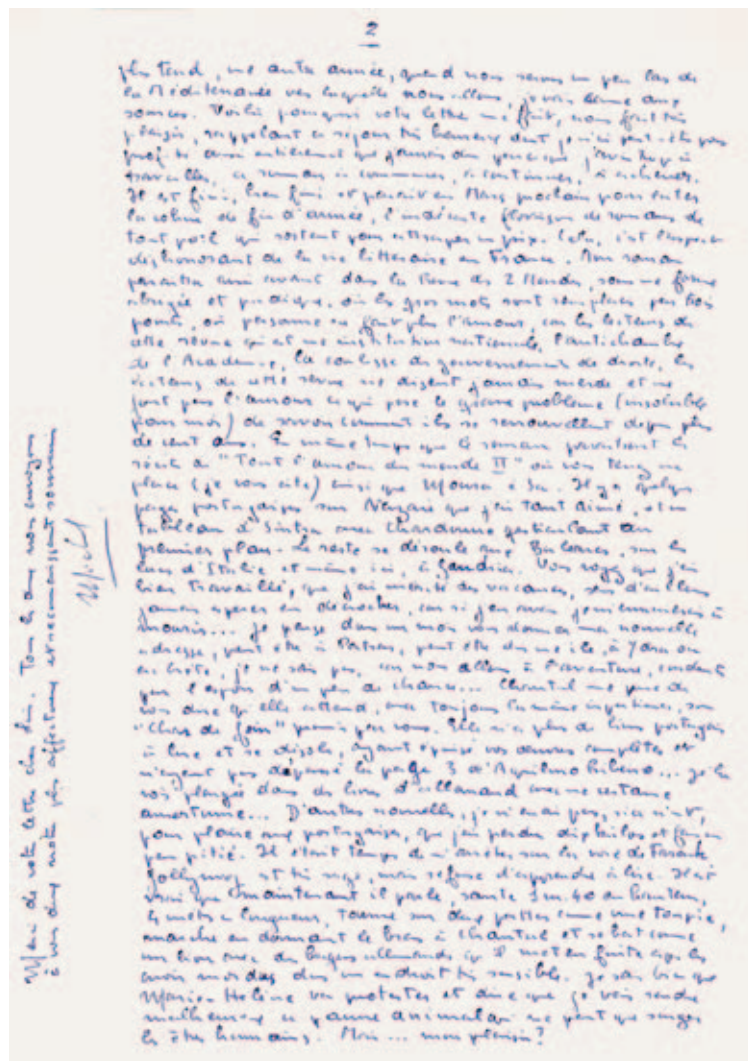 2
plus tard, une autre année, quand nous serons un peu las de
la Méditerranée vers laquelle nous allons, je vais aux
sources. Voilà pourquoi votre lettre me fait, nous fait très
plaisir, rappelant ce séjour très heureux dont je n'ai peut-être pas
profité aussi entièrement que parce que j'avais trop à
travailler, ce roman à commencer, à continuer, à achever.
Il est fini, bien fini et paraît en Mars prochain pour éviter
la cohue de fin d'année, l'indécente floraison de romans de
tout poil qui sortent pour attraper un prix. Cela, c'est l'aspect
déshonorant de la vie littéraire en France. Mon roman
paraîtra avant dans la Revue des 2 Mondes, sous une forme
abrégée et pudique, où les gros mots sont remplacés par trois
points, où personne ne fait plus l'amour, car les lecteurs de
cette revue qui est une institution nationale, l'antichambre
de l'Académie, la coulisse des gouvernements de droite, les
lecteurs de cette revue ne disent jamais merde et ne
font pas l'amour ce qui pose le grave problème (insoluble
pour moi) de savoir comment ils se renouvellent depuis plus
de cent ans. En même temps que le roman paraîtront les
récits de "Tout l'amour du monde II" où vous tenez une
place (je vous cite) ainsi que Moura e Sa. Il y a quelques
pages portugaises sur Nazaré que j'ai tant aimé, et un
tableau de Sintra avec Chardonne gesticulant au
premier plan. Le reste se déroule aux Baléares, sur les
lacs d'Italie et même ici, à Gandria. Vous voyez que j'ai
bien travaillé, que j'ai mérité des vacances, sans d'ailleurs
jamais espérer en décrocher, car si j'en avais je m'ennuierais à
mourir... Je pense dans un mois vous donner une nouvelle
adresse, peut être à Patras, peut être dans une île, à
en Crète, je ne sais pas, car nous allons à l'aventure, conduits
par l'espoir d'un peu de chance... Chantal me prie de
vous dire qu'elle attend, avec toujours la même impatience, son
promis par vous. Elle n'a plus de livres portugais
à lire et se désole, ayant épuisé vos œuvres complètes et
n'ayant pas dépassé la page 3 d'Aquilino Ribeiro... je la
vois plongée dans des livres d'allemand avec une certaine
amertume... D'autres nouvelles, je n'en ai pas, rien n'est,
pour plaire aux portugaises, que j'ai perdu dix kilos et
peu pitié. Il était temps de m'arrêter sur la voie de
est très sage, mais refuse d'apprendre à lire. Il est
vrai que maintenant il parle, saute 1m.40 en hauteur,
4 mètres en longueur, tourne sur deux pattes comme une toupie,
marche en donnant le bras à Chantal et se bat comme
un lion avec des allemands qu'il met en fuite après les
avoir mordus dans un endroit très sensible. Je sais bien que
Marie-Hélène va protester et dire que je vais rendre
malheureux ce pauvre animal qui ne peut que singer
les êtres humains. Mais... mon plaisir?
Merci de votre lettre cher ami. Tous les deux nous envoyons
à vous deux notre plus affectueux et reconnaissant souvenir
Michel